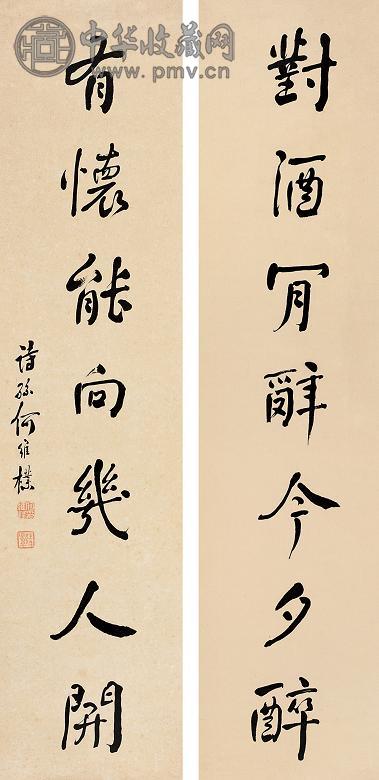 中华收藏网
www.pmv.cn
對酒肎辭今夕醉
有懷能向幾人開
詩孫何維樸